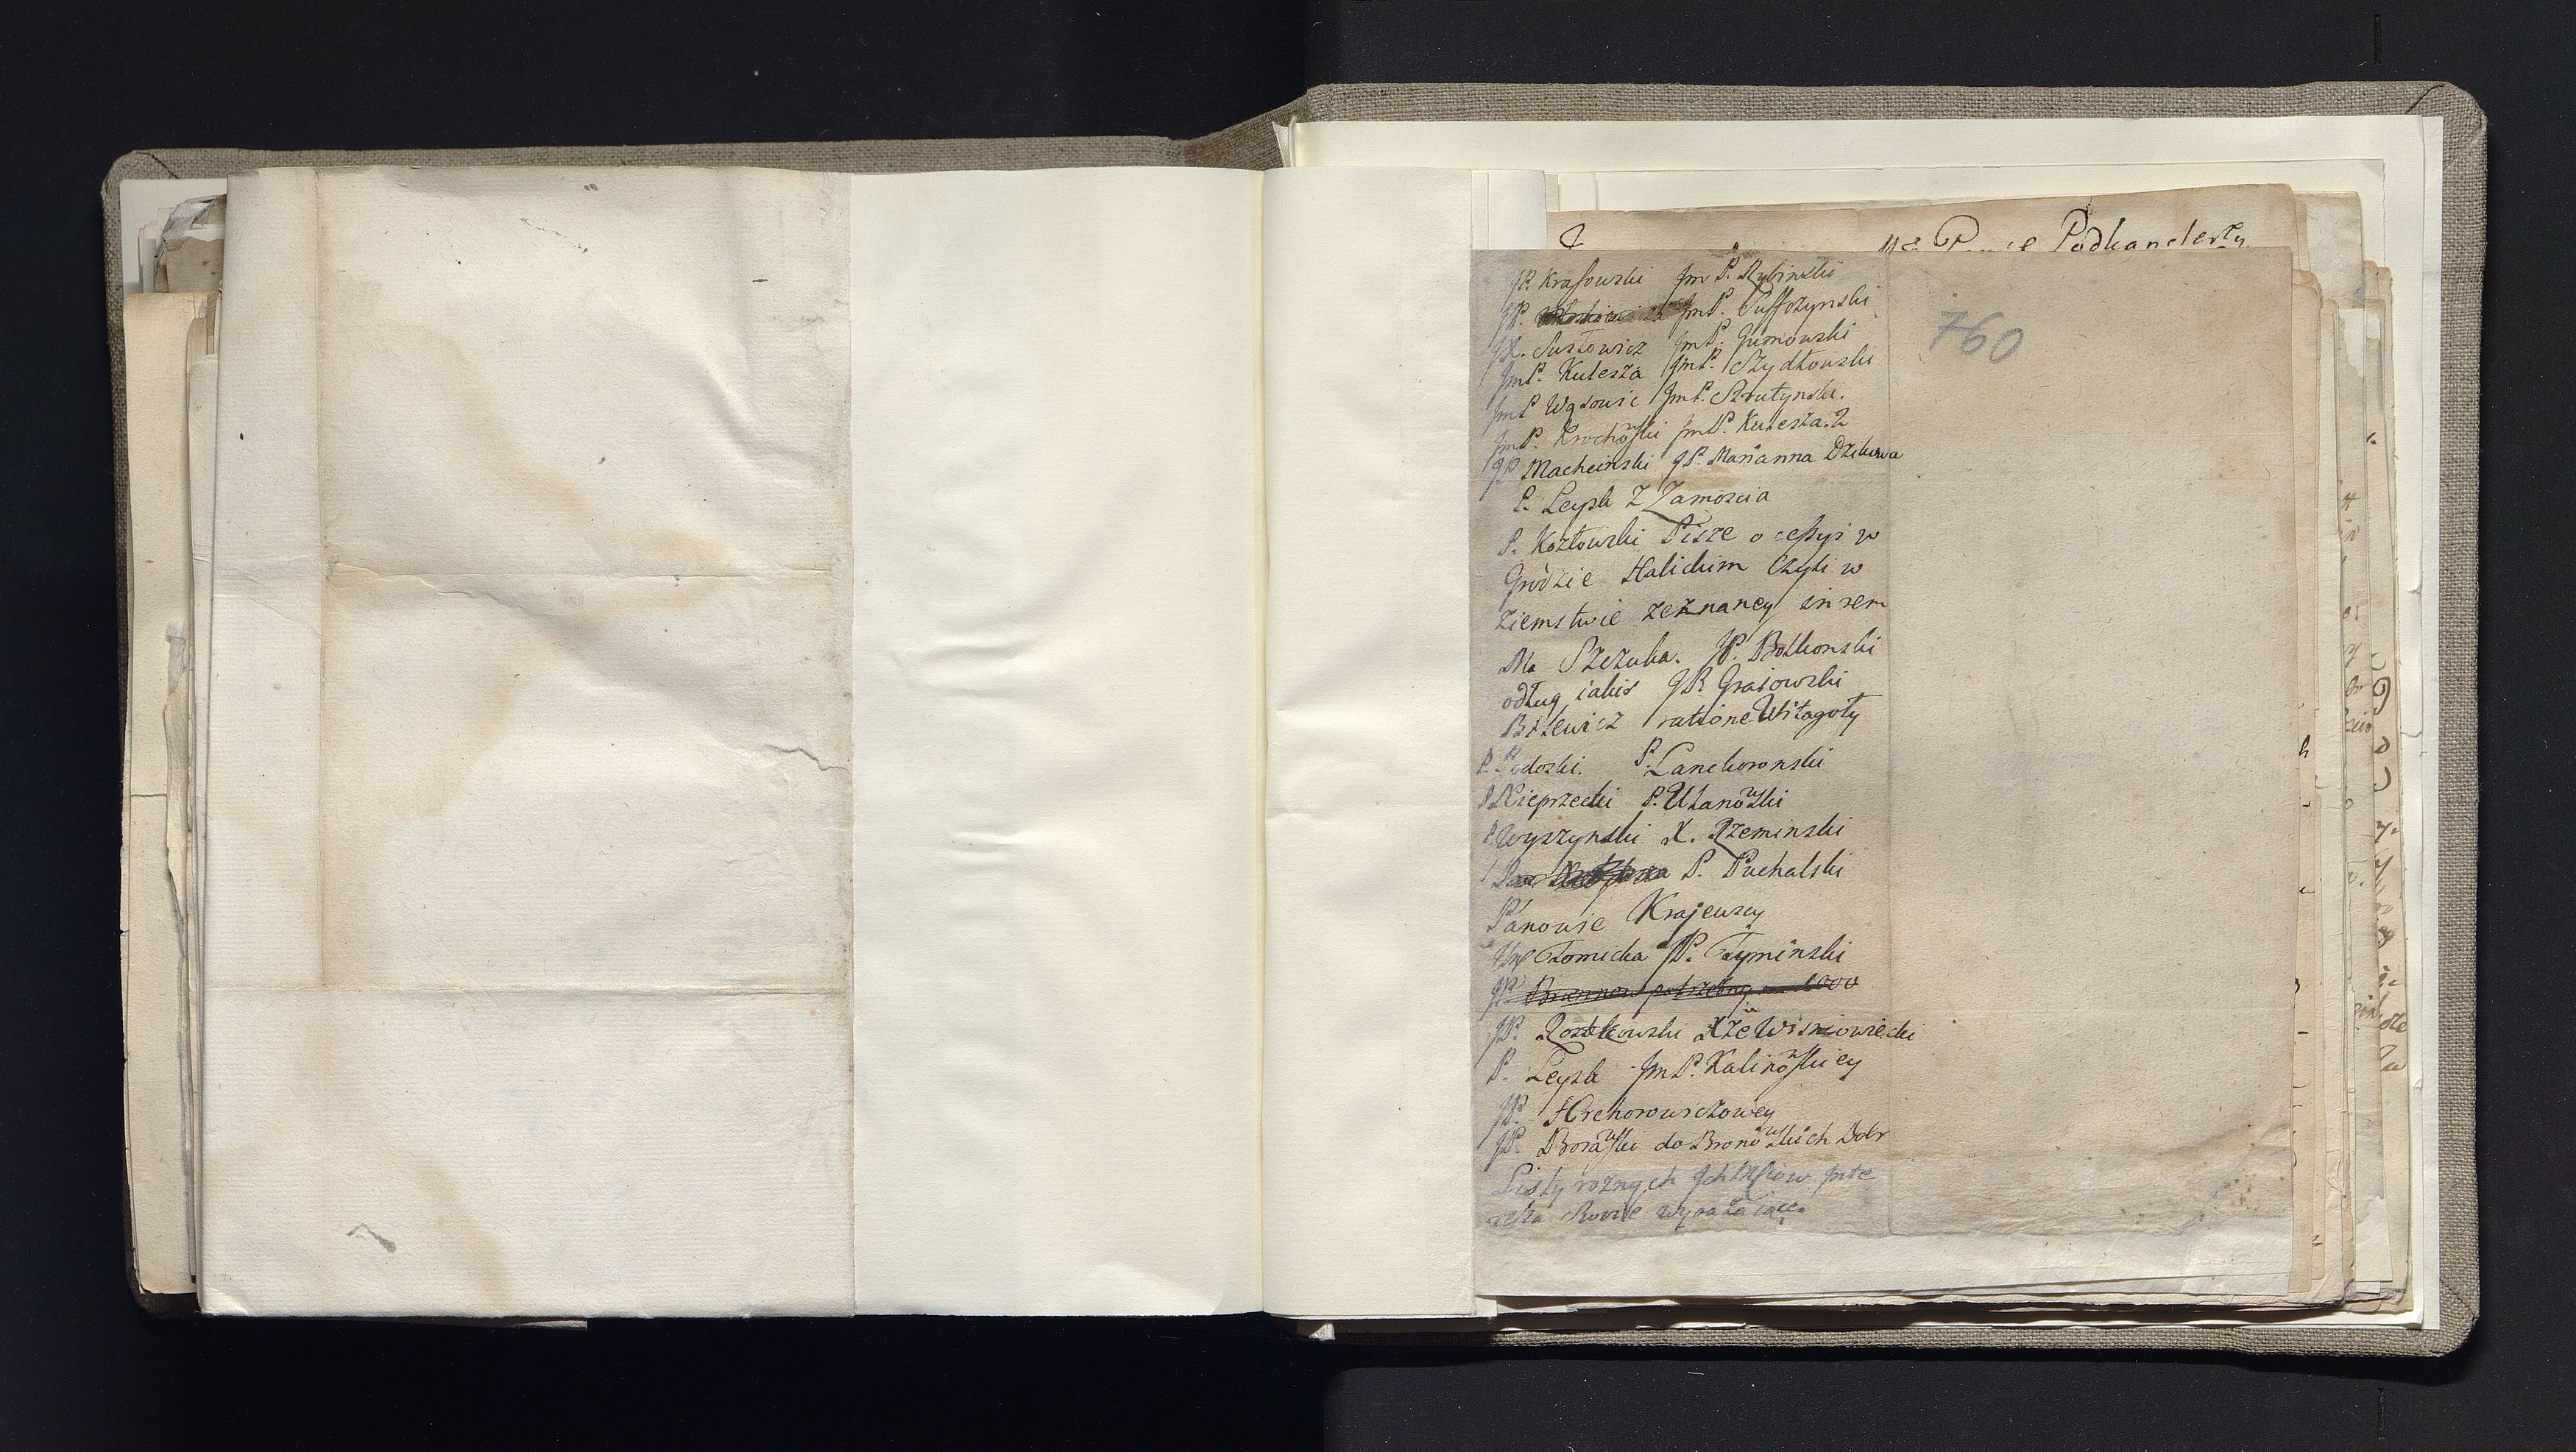 Podkanclerzy
760
JP. Krasowski Jm P. Rybinski
JP. JmP. Tuffczynski
JX. Suszowicz JmP. Jumowski
JmP. Kulesza JmP. Szydłowski
JmP Wąsowic JmP. Strutynski.
JmP. Krochowski JmP. Kulesza. 2
JP Macheinski JP. Marianna Dzikowa
P. Leysk z Zamoscia
P. Kozłowski Pisze o cessyi w
Grodzie Halickim Czyli w
Ziemstwie zeznaney in rem
Ma Szczuka. JP. Botkonski
odług iakis JP. Graiowski
Bilewicz ratione Witagoły
P. Podoski. P. Lanckoronski
P Nieprzecki P. Ulanowski
P. Wyszynski X. Rzeminski
P. Puchalski
Panowie Krajewscy
Tomicka JP. Tyminski
JP. Brunnow potrzebny 1000
JP. Roszkowski Xże Wisniowiecki
P. Leysk JmP. Kalinowskiey
JP. Hrehorowiczowey
JP. Borawski do Bronowskich Dobr
Listy roznych
wyrażaiące.